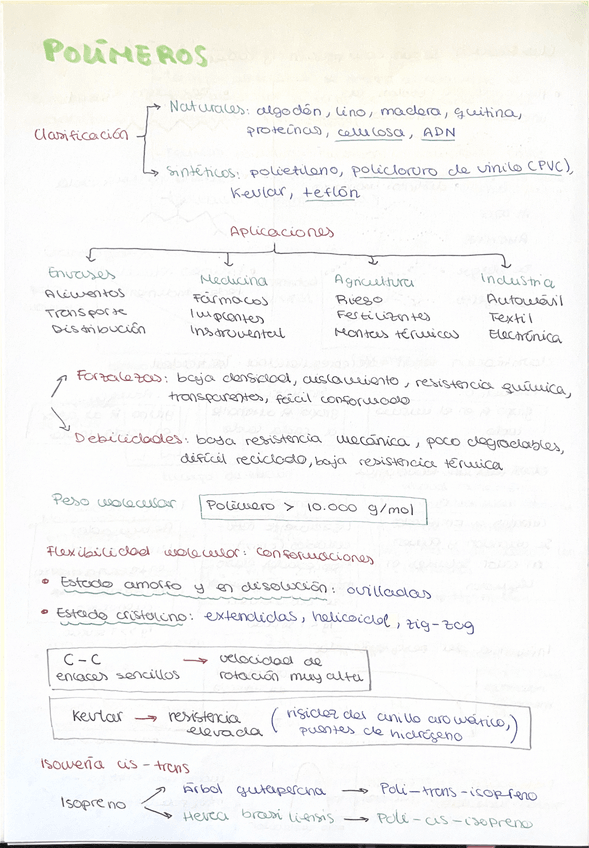 POLÍMEROS
Clasificación
Naturales: algodón, lino, madera, quitina,
proteínas, celulosa, ADN
Sintéticos: polietileno, policloruro de vinilo (PVC),
Kevlar, teflón
Aplicaciones
Envases Medicina Agricultura Industria
Alimentos Fármacos Riego Automóvil
Transporte Implantes Fertilizantes Textil
Distribución Instrumental Mantas térmicas Electrónica
Fortalezas: baja densidad, aislamiento, resistencia química,
transparentes, fácil conformado
Debilidades: baja resistencia mecánica, poco degradables,
difícil reciclado, baja resistencia térmica
Peso molecular Polímero > 10.000 g/mol
Flexibilidad molecular: conformaciones
• Estado amorfo y en disolución: ovilladas
• Estado cristalino: extendidas, helicoidal, zig-zag
C-C → velocidad de
enlaces sencillos rotación muy alta
Kevlar → resistencia (rigidez del anillo aromático,
elevada puentes de hidrógeno)
Isomería cis-trans
Isopreno
Árbol gutapercha → Poli-trans-isopreno
Hevea brasiliensis → Poli-cis-isopreno